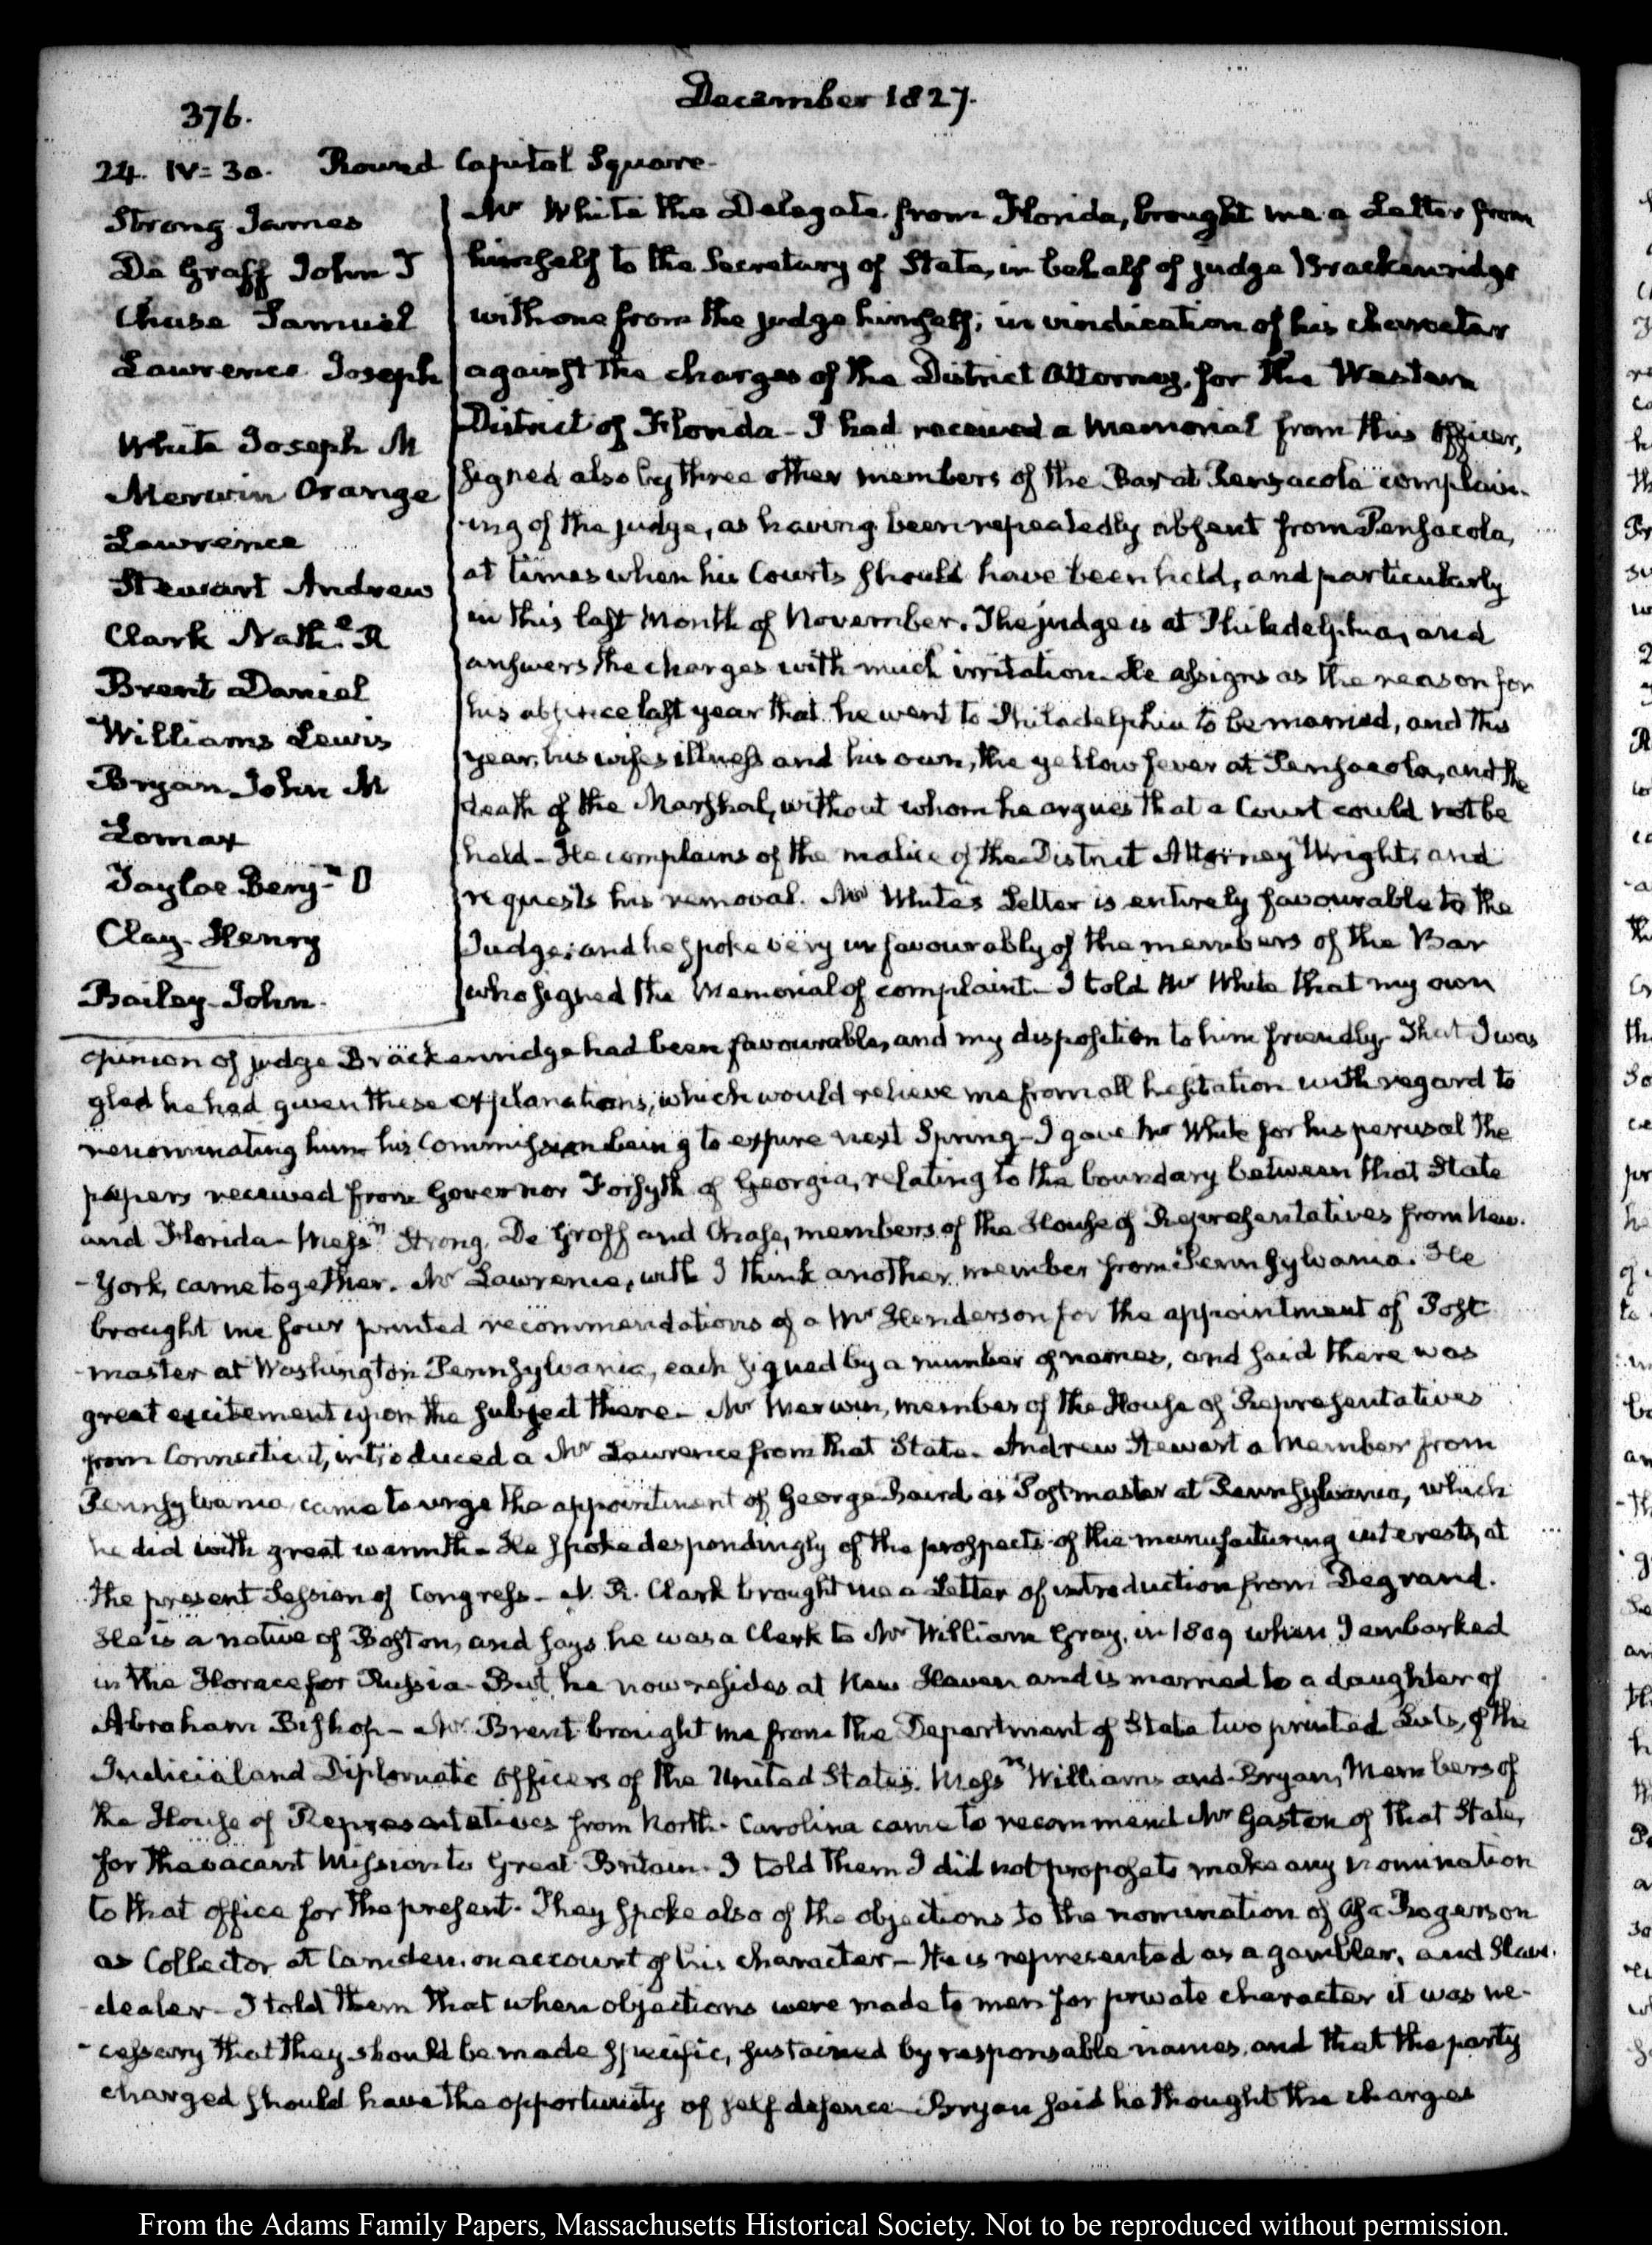 December 1827.
376.
24. IV: 30. Round Capitol Square.
Strong James
De Graff John I
Chase Samuel
Lawrence Joseph
White Joseph M
Merwin Orange
Lawrence
Stewart Andrew
Clark Nath.e R
Brent Daniel
Williams Lewis
Bryan John H
Lomax
Tayloe Benj.n O
Clay Henry
Bailey John.
Mr White the Delegate from Florida, brought me a Letter from
himself to the Secretary of State, in behalf of judge Brackenridge
with one from the judge himself; in vindication of his character
against the charges of the District Attorney, for the Western
District of Florida - I had received a Memorial from this officer,
signed also by three other members of the Bar at Pensacola complain-
-ing of the judge, as having been repeatedly absent from Pensacola,
at times when his Courts should have been held, and particularly
in this last Month of November. The judge is at Philadelphia, and
answers the charges with much irritation. He assigns as the reason for
his absence last year that he went to Philadelphia to be married, and this
year, his wife's illness and his own, the yellow fever at Pensacola, and the
death of the Marshal, without whom he argues that a Court could not be
held - He complains of the malice of the District Attorney Wright, and
requests his removal. Mr White's Letter is entirely favourable to the
Judge; and he spoke very unfavourably of the members of the Bar
who signed the Memorial of complaint - I told Mr White that my own
opinion of judge Brackenridge had been favourable, and my disposition to him friendly. That I was
glad he had given these explanations, which would relieve me from all hesitation with regard to
renominating him his Commission being to expire next Spring - I gave Mr White for his perusal the
papers received from Governor Forsyth of Georgia, relating to the boundary between that State
and Florida - Mess.rs Strong, De Graff and Chase, members of the House of Representatives from New-
-York, came together. Mr Lawrence, with I think another member from Pennsylvania. He
brought me four printed recommendations of a Mr Henderson for the appointment of Post
-master at Washington Pennsylvania, each signed by a number of names, and said there was
great excitement upon the subject there - Mr Merwin, member of the House of Representatives
from Connecticut, introduced a Mr Lawrence from that State. Andrew Stewart a Member from
Pennsylvania came to urge the appointment of George Baird as Postmaster at Pennsylvania, which
he did with great warmth - He spoke despondingly of the prospects of the manufacturing interests, at
the present Session of Congress - N. R. Clark brought me a Letter of introduction from Degrand.
He is a native of Boston, and says he was a Clerk to Mr William Gray, in 1809 when I embarked
in the Horace for Russia - But he now resides at New Haven and is married to a daughter of
Abraham Bishop - Mr Brent brought me from the Department of State two printed Lists, of the
Judicial and Diplomatic Officers of the United States. Mess.rs Williams and Bryan, Members of
the House of Representatives from North-Carolina came to recommend Mr Gaston of that State,
for the vacant Mission to Great Britain - I told them I did not propose to make any nomination
to that office for the present. They spoke also of the objections to the nomination of Rogerson
as Collector at Camden, on account of his character - He is represented as a gambler, and Slave-
-dealer - I told them that when objections were made to men for private character it was ne-
-cessary that they should be made specific, sustained by responsable names, and that the party
charged should have the opportunity of self defence - Bryan said he thought the charges
From the Adams Family Papers, Massachusetts Historical Society. Not to be reproduced without permission.